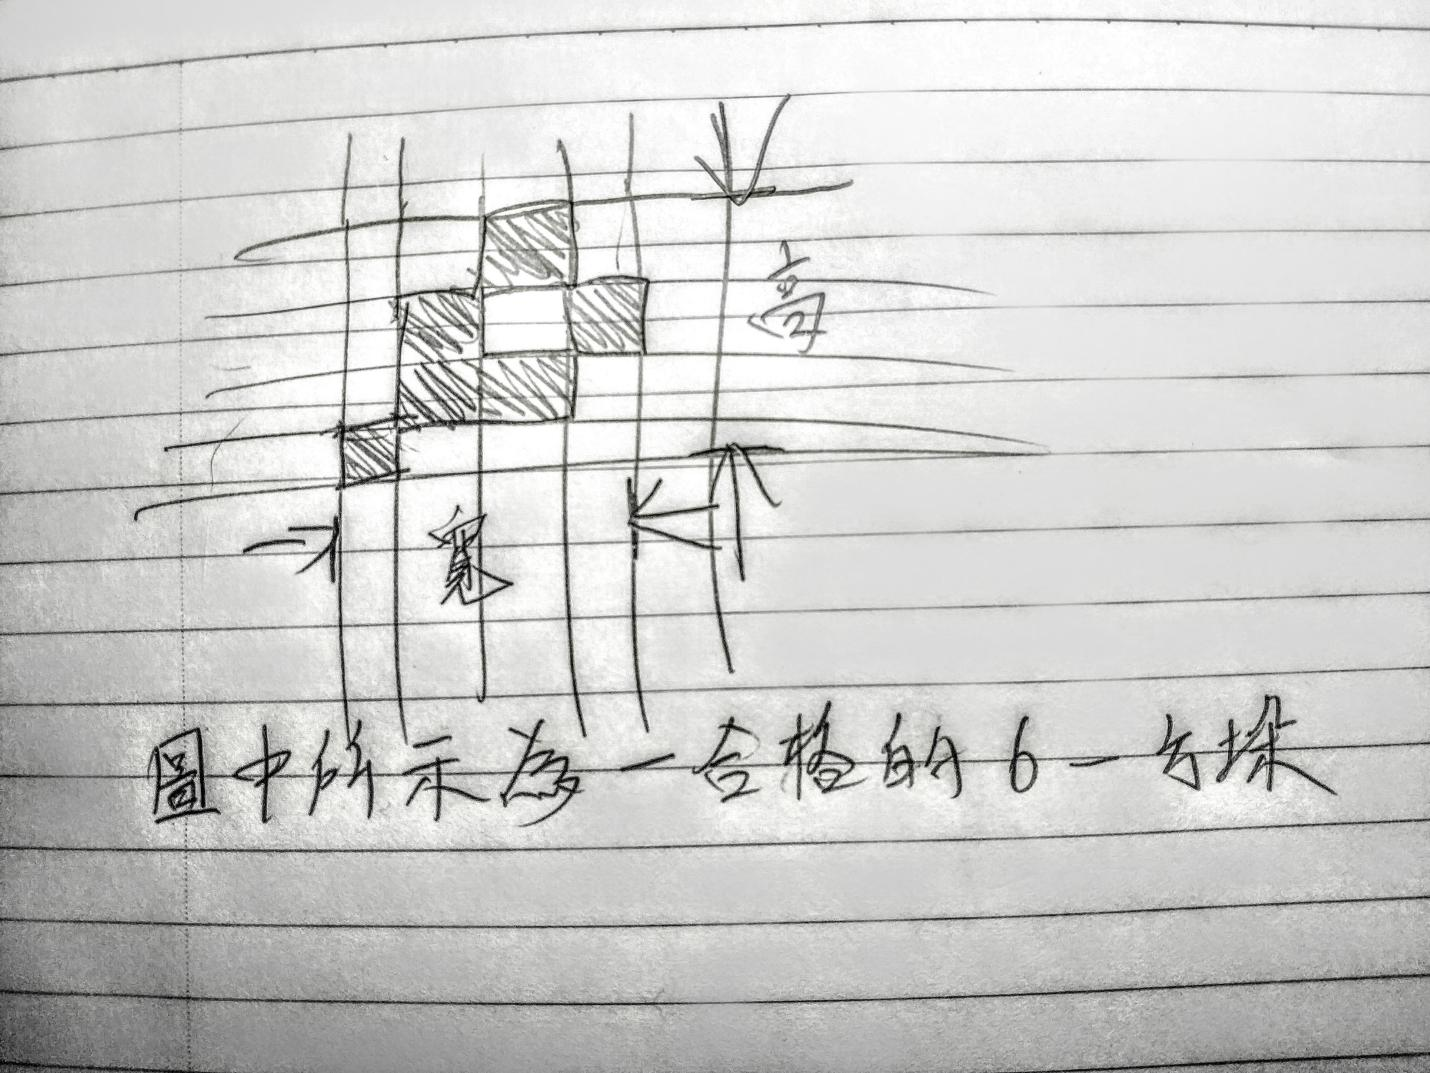 高
寬
圖中所示為一合格的6-方垛